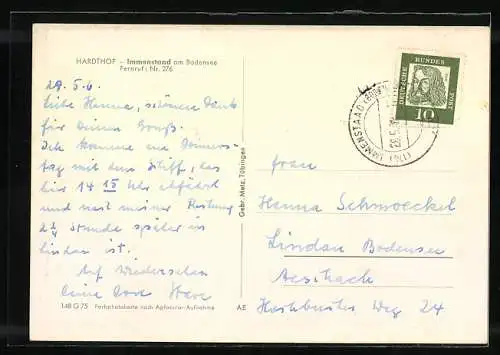 HARDTHOF – Immenstaad am Bodensee
Fernruf: Nr. 276
29.5.6.
Liebe Henna, schönen Dank
für Deinen Gruß.
Ich komme am Donners-
tag mit dem Schiff, das
hier 14 15 Uhr abfährt
und nach meiner Rechnung
2 1/4 Stunde später in
Lindau ist.
Auf Wiedersehen
Deine
148 G 75 Farbphotokarte nach Agfacolor-Aufnahme AE
Gebr. Metz, Tübingen
DEUTSCHE BUNDESPOST
10
IMMENSTAAD (BODENSEE)
Frau
Henna Schmoeckel
Lindau Bodensee
Aeschach
Weg 24